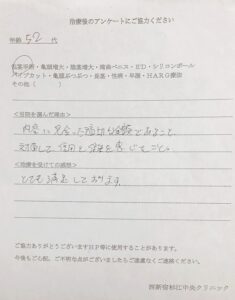 治療後のアンケートにご協力ください
年齢 52 代
包茎手術・亀頭増大・陰茎増大・・ED・シリコンボール
パイプカット・亀頭ぶつぶつ・長茎・性病・早漏・HARG療法
その他(　　)
<当院を選んだ理由>
内容に見合った適切な金額であること、
対応して信用と誠実を感じたこと。
<治療を受けての感想>
とても満足しております。
ご協力ありがとうございますHP等に使用することがあります。
今後もご心配、ご不明な点がございましたらご遠慮なくご連絡ください。
西新宿杉江中央クリニック